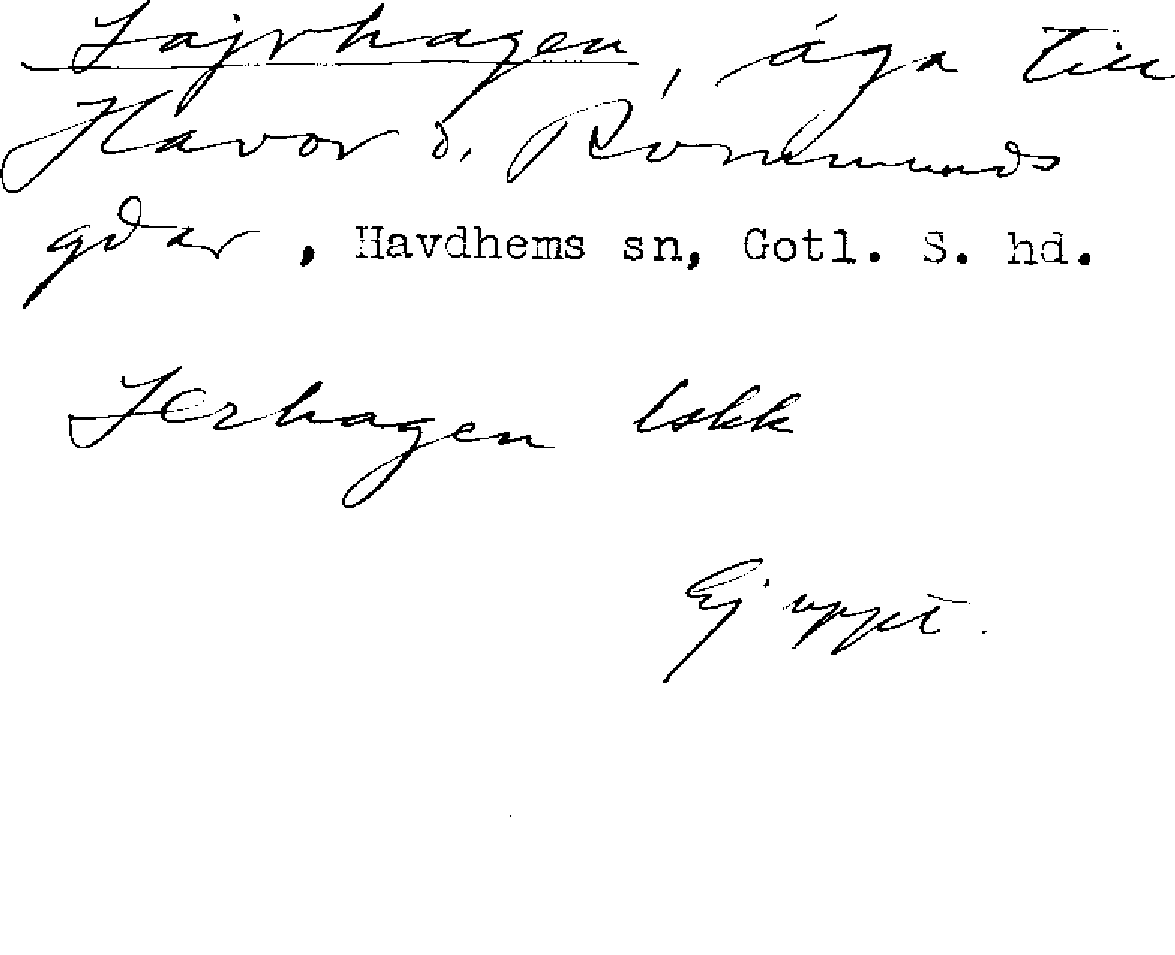 Lajrhagen, äga till
Havor o. Rommunds
gdar, Havdhems sn, Gotl. S. hd.
Lerhagen lskk
Ej uppt.